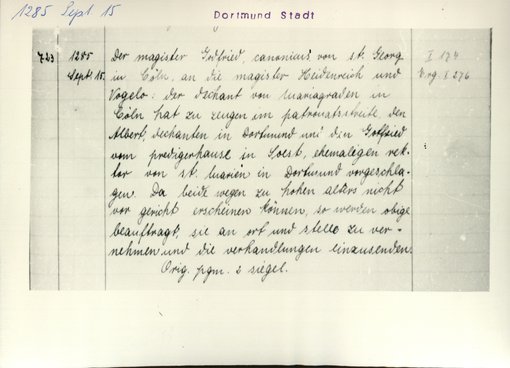 1285 Sept. 15
Dortmund Stadt
723
1285
Sept. 15.
Der magister Gotfried, canonicus von st. Georg
in Cöln, an die magister Heidenreich und
Vogelo: der dechant von Mariagraden in
Cöln hat zu zeugen im patronatsstreite den
Albert, dechanten in Dortmund und den Gottfried
vom predigerhause in Soest, ehemaligen rek-
tor von st. Marien in Dortmund vorgeschla-
gen. Da beide wegen zu hohen alters nicht
vor gericht erscheinen können, so werden obige
beauftragt, sie an ort und stelle zu ver-
nehmen und die verhandlungen einzusenden.
Orig. pgm. 2 siegel.
I 174
Erg. I 276